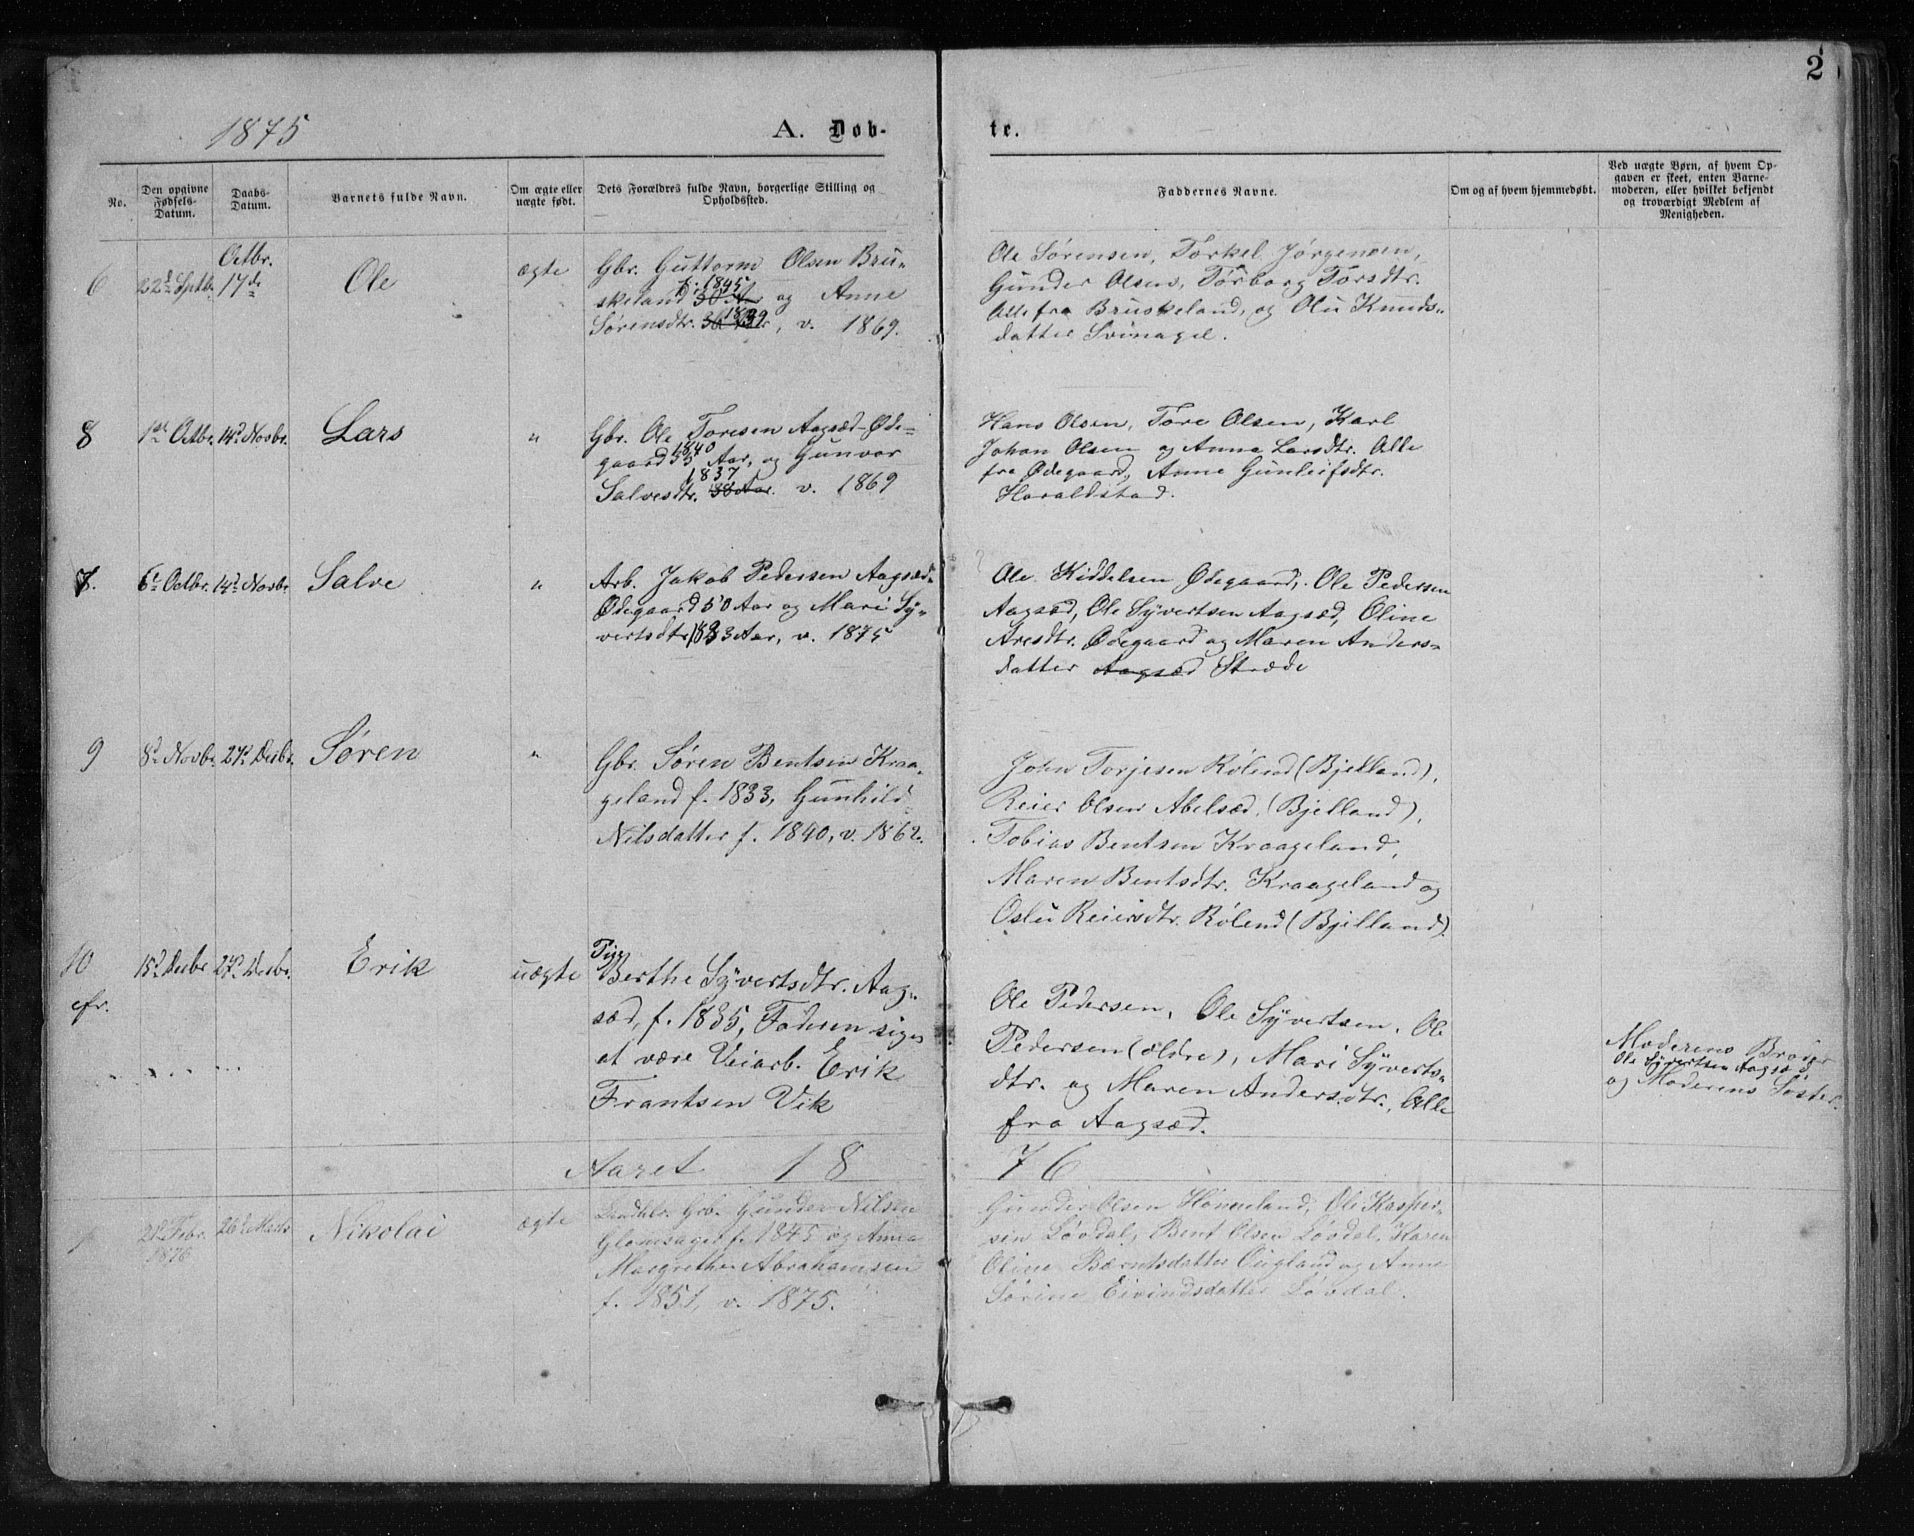 2
1875
A. Døb-
te.
No.
Den opgivne
Fødsels-
Datum.
Daabs-
Datum.
Barnets fulde Navn.
Om ægte eller
uægte født.
Dets Forældres fulde Navn, borgerlige Stilling og
Opholdssted.
Faddernes Navne.
Om og af hvem hjemmedøbt.
Ved uægte Børn, af hvem Op-
gaven er skeet, enten Barne-
moderen, eller hvilket bekjendt
og troværdigt Medlem af
Menigheden.
6
22d Sptb.
Octbr.
17de
Ole
ægte
Gbr. Guttorm Olsen Bru-
f. 1845
skeland 30 Aar og Anne
1839
Sørensdtr. 36 Aar, v. 1869.
Ole Sørensen, Torkel Jørgensen,
Gunder Olsen, Torborg Torsdtr.
Alle fra Bruskeland, og Olu Knuds-
datter Svinagel.
8
1ste Octbr.
14d Novbr.
Lars
"
Gbr. Ole Toresen Aagsæd-Øde-
1840
gaard 35 Aar, og Gunvor
1837
Salvesdtr. 38 Aar. v. 1869
Hans Olsen, Tore Olsen, Karl
Johan Olsen og Anna Larsdtr. Alle
fra Ødegaard, Anne Gunleifsdtr.
Haraldstad.
7.
6te Octbr.
14d Novbr.
Salve
"
Arb. Jakob Pedersen Aagsæd-
Ødegaard 50 Aar og Mari Sy-
vertsdtr. 1833 Aar, v. 1875
Ole Kiddelsen Ødegaard, Ole Pedersen
Aagsæd, Ole Syvertsen Aagsæd, Oline
Aresdtr. Ødegaard og Maren Anders-
datter Aagsæd Stræde
9
8d Novbr.
27d Decbr.
Søren
"
Gbr. Søren Bentsen Kraa-
geland f. 1833, Gunhild
Nilsdatter f. 1840, v. 1862.
John Torjesen Røland (Bjelland),
Reier Olsen Abelsæd (Bjelland),
Tobias Bentsen Kraageland,
Maren Bentsdtr. Kraageland og
Oslu Reiersdtr. Røland (Bjelland).
10
cfr.
15d Decbr
27d Decbr.
Erik
uægte
Pige
Berthe Syvertsdtr. Aag-
sæd, f. 1835, Faderen siges
at være Veiarb. Erik
Frantsen Vik
Ole Pedersen, Ole Syvertsen, Ole
Pedersen (ældre), Mari Syverts-
dtr. og Maren Andersdtr., Alle
fra Aagsæd.
Moderens Broder
Ole Syvertsen Aagsæd
og Moderens Søster.
Aaret 18
76
1
21d Febr.
1876
26d Marts
Nikolai
ægte
Gbr. Gunder Nilsen
Glomsaget f. 1845 og Anna
Margrethe Abrahamsen
f. 1851, v. 1875.
Gunder Olsen Hønneland, Ole Kasper-
sen Løvdal, Bent Olsen Løvdal, Karen
Oline Bærntsdatter Øugland og Anne
Sørine Eivindsdatter Løvdal.